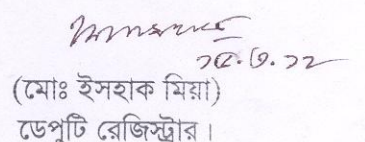 ১৫.৩.১২
(মোঃ ইসহাক মিয়া)
ডেপুটি রেজিস্ট্রার।